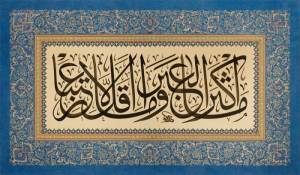 ما أكثر العبر وما أقل الاعتبار